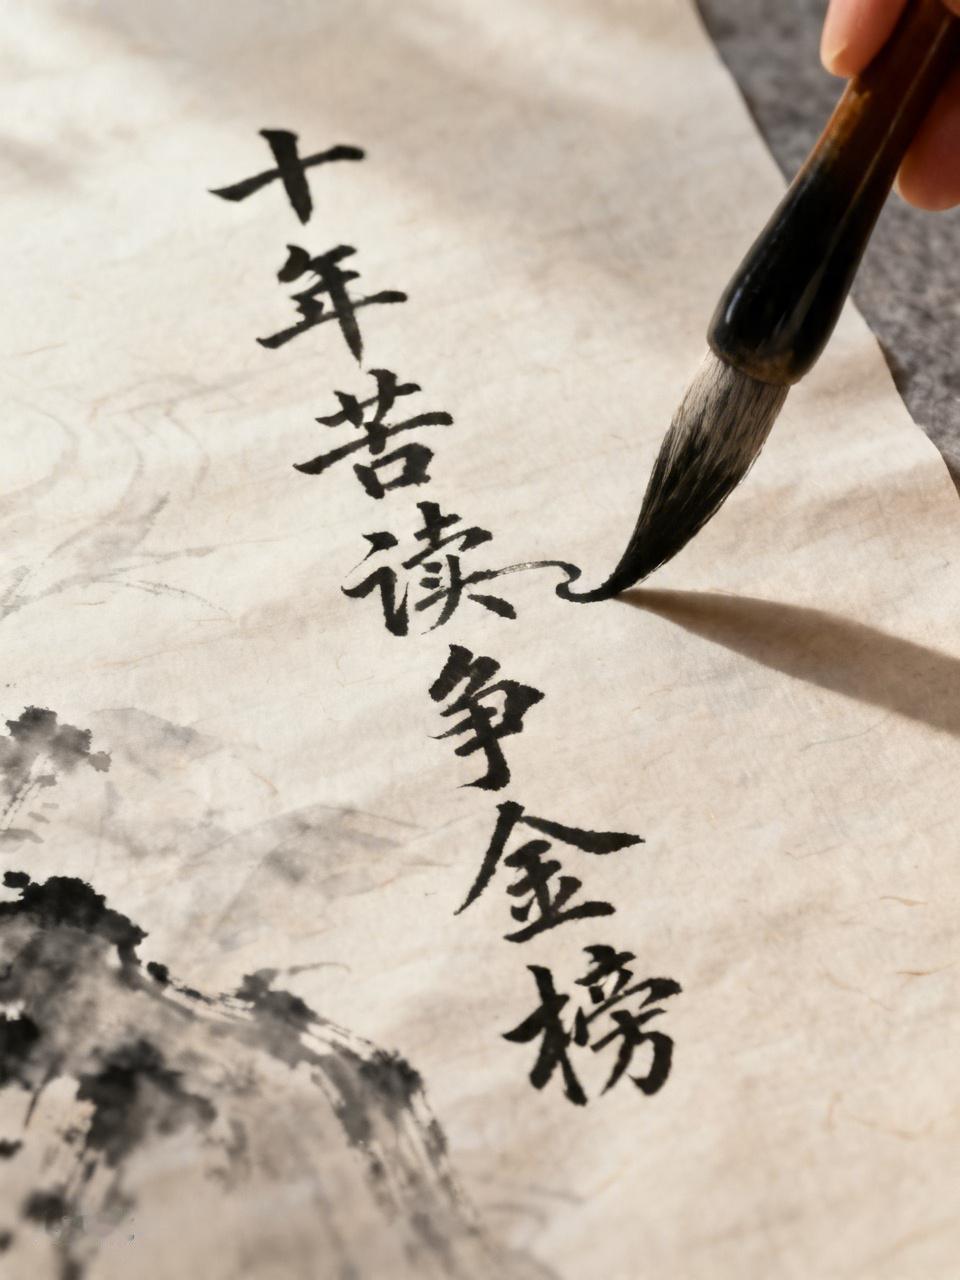 十年苦读争金榜